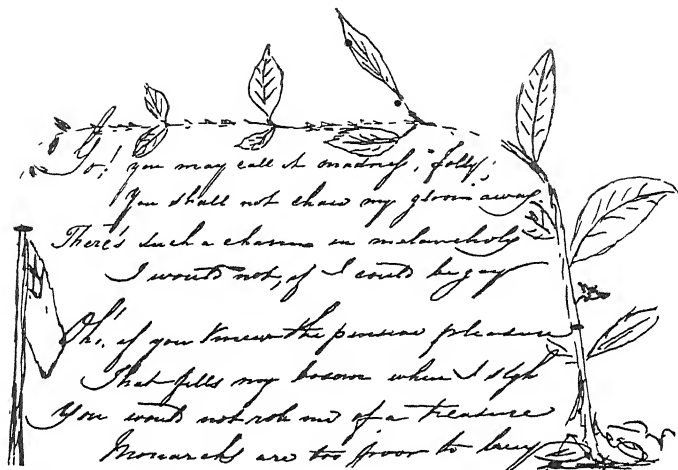 Go! you may call it madness, "folly",
You shall not chase my gloom away.
There's such a charm in melancholy
I would not, if I could be gay
Oh!, if you knew the pensive pleasure
That fills my bosom when I sigh
You would not rob me of a treasure
Monarchs are too poor to buy